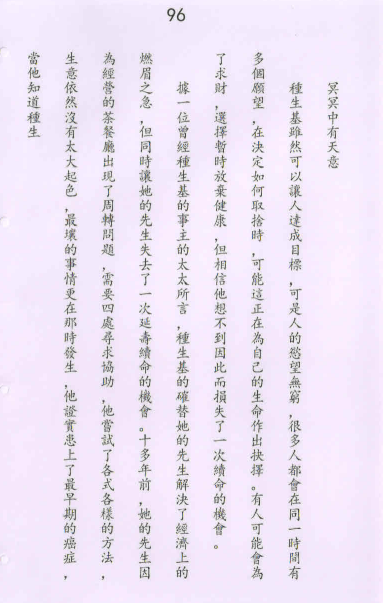 96
冥冥中有天意
種生基雖然可以讓人達成目標,可是人的慾望無窮,很多人都會在同一時間有
多個願望,在決定如何取捨時,可能這正在為自己的生命作出抉擇。有人可能會為
了求財,選擇暫時放棄健康,但相信他想不到因此而損失了一次續命的機會。
據一位曾經種生基的事主的太太所言,種生基的確替她的先生解決了經濟上的
燃眉之急,但同時讓她的先生失去了一次延壽續命的機會。十多年前,她的先生因
為經營的茶餐廳出現了周轉問題,需要四處尋求協助,他嘗試了各式各樣的方法,
生意依然沒有太大起色,最壞的事情更在那時發生,他證實患上了最早期的癌症,
當他知道種生